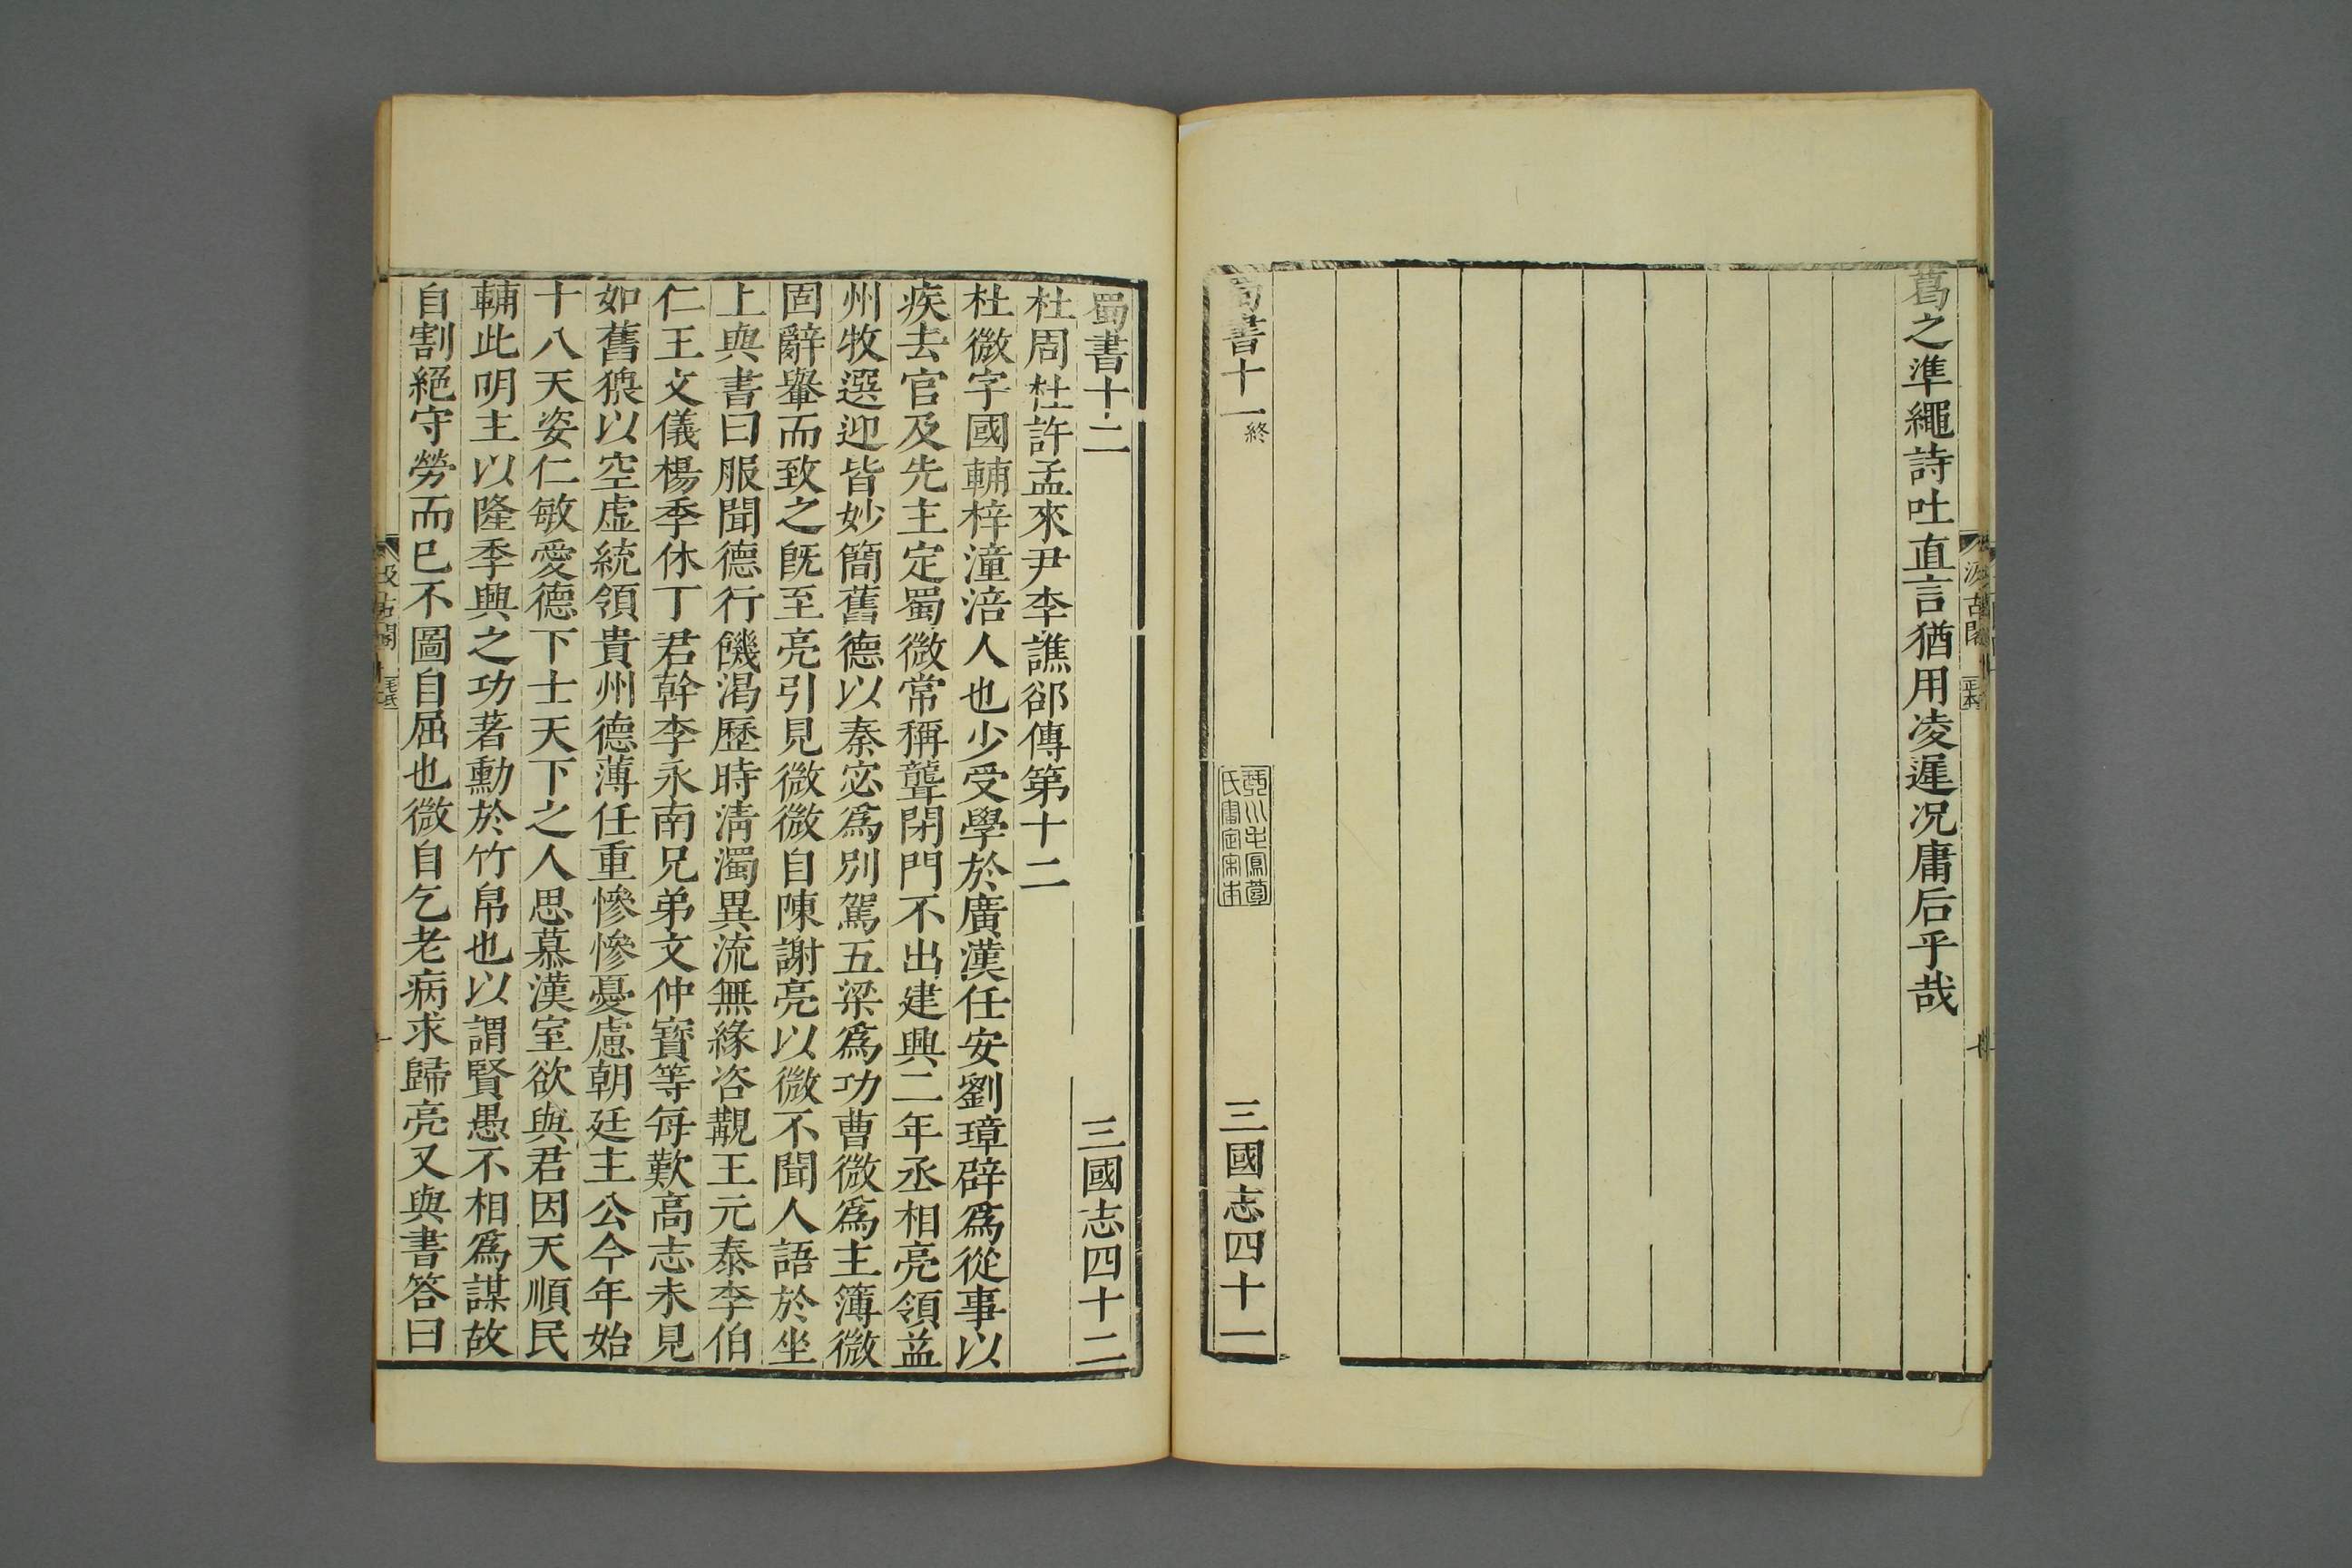 葛之準繩詩吐直言猶用凌遲况庸后乎哉
蜀書十一終
三國志四十一
蜀書十二
三國志四十二
杜周杜許孟來尹李譙郤傳第十二
杜微字國輔梓潼涪人也少受學於廣漢任安劉璋辟爲從事以
疾去官及先主定蜀微常稱聾閉門不出建興二年丞相亮領益
州牧選迎皆妙簡舊德以秦宓爲別駕五梁爲功曹微爲主簿微
固辭轝而致之旣至亮引見微微自陳謝亮以微不聞人語於坐
上與書曰服聞德行饑渴歷時淸濁異流無緣咨覯王元泰李伯
仁王文儀楊季休丁君幹李永南兄弟文仲寶等每歎高志未見
如舊猥以空虛統領貴州德薄任重慘慘憂慮朝廷主公今年始
十八天姿仁敏愛德下士天下之人思慕漢室欲與君因天順民
輔此明主以隆季興之功著勳於竹帛也以謂賢愚不相爲謀故
自割絕守勞而已不圖自屈也微自乞老病求歸亮又與書答曰